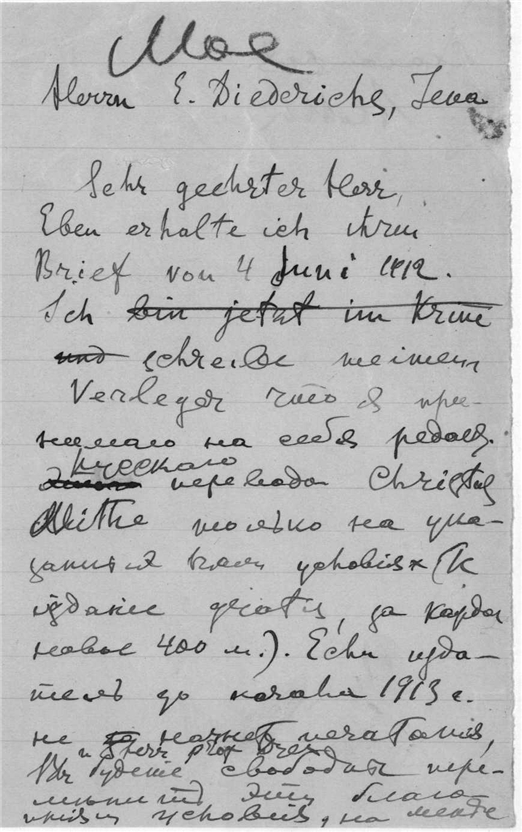 Мое
Herrn E. Diederichs, Jena
Sehr geehrter Herr,
Eben erhalte ich ihren
Brief von 4 Juni 1912.
Ich bin jetzt im Krim
und schreibe meinem
Verleger что я при-
нимаю на себя редакц.
русскаго
перевода Christus
Mithe только на ука-
занных Вами условіях (1е
изданіе gratis, за каждое
новое 400 м.). Если изда-
тель до начала 1913 г.
не начнет печатанія,
и Herr prof Drews
Вы будете свободны пере-
менить эти
условия, на